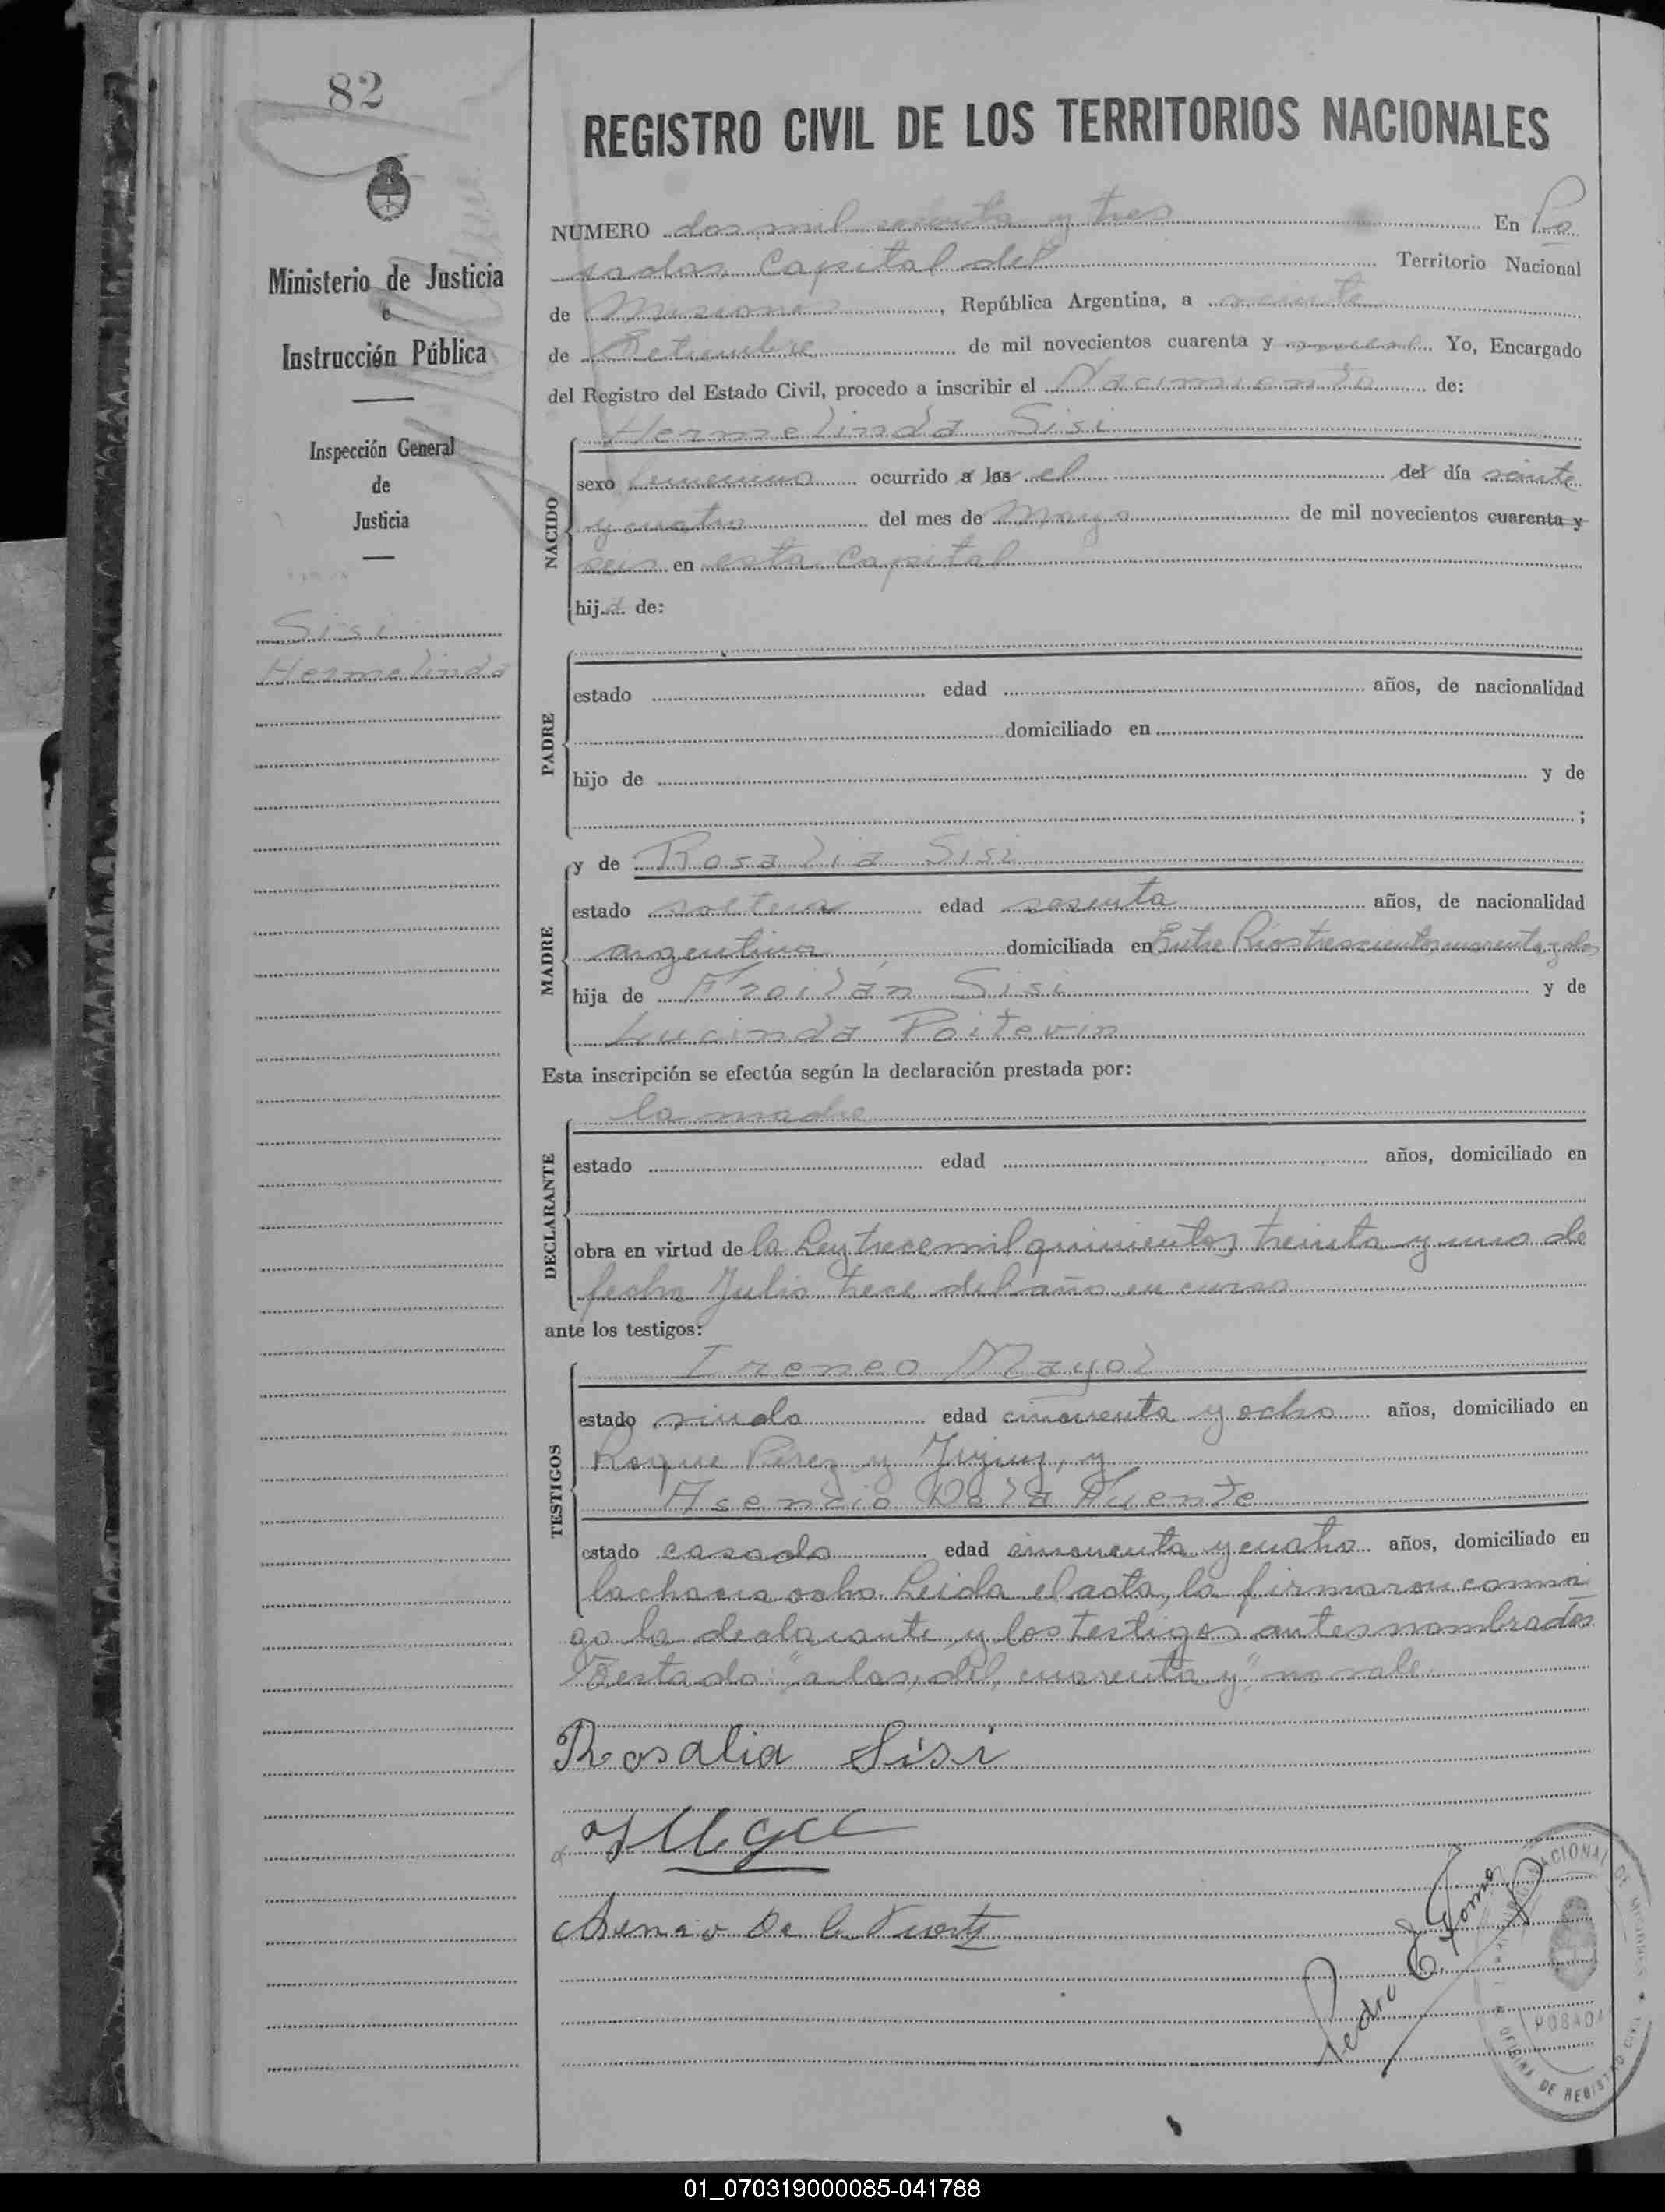 82
REGISTRO CIVIL DE LOS TERRITORIOS NACIONALES
Ministerio de Justicia
e
Instrucción Pública
Inspección General
de
Justicia
Sisi
Hermelinda
NUMERO dos mil y tres En Po
sadas Capital del Territorio Nacional
de Misiones, República Argentina, a veinte
de Setiembre de mil novecientos cuarenta y Yo, Encargado
del Registro del Estado Civil, procedo a inscribir el Nacimiento de:
NACIDO
Hermelinda Sisi
sexo femenino ocurrido a las el del día veinte
y cuatro del mes de Mayo de mil novecientos cuarenta y
seis en esta Capital
hija de:
PADRE
estado edad años, de nacionalidad
domiciliado en
hijo de y de
;
MADRE
y de Rosalia Sisi
estado soltera edad sesenta años, de nacionalidad
argentina domiciliada en Entre Rios trescientos cuarenta y dos
hija de Froilán Sisi y de
Lucinda Poitevin
Esta inscripción se efectúa según la declaración prestada por:
la madre
DECLARANTE
estado edad años, domiciliado en
obra en virtud de la Ley trece mil quinientos treinta y uno de
fecha Julio trece del año en curso
ante los testigos:
TESTIGOS
Ireneo Mayol
estado viudo edad cincuenta y ocho años, domiciliado en
Roque Perez y Jujuy, y
Asencio De la Fuente
estado casado edad cincuenta y cuatro años, domiciliado en
la chacra ocho. Leida el acta, la firmaron conmi
go la declarante y los testigos antes nombrados
Testado: "a las, del, cuarenta y" no vale
Rosalia Sisi
Asencio De la Fuente
Pedro E.
POSADAS
OFICINA DE REGISTRO CIVIL
01_070319000085-041788